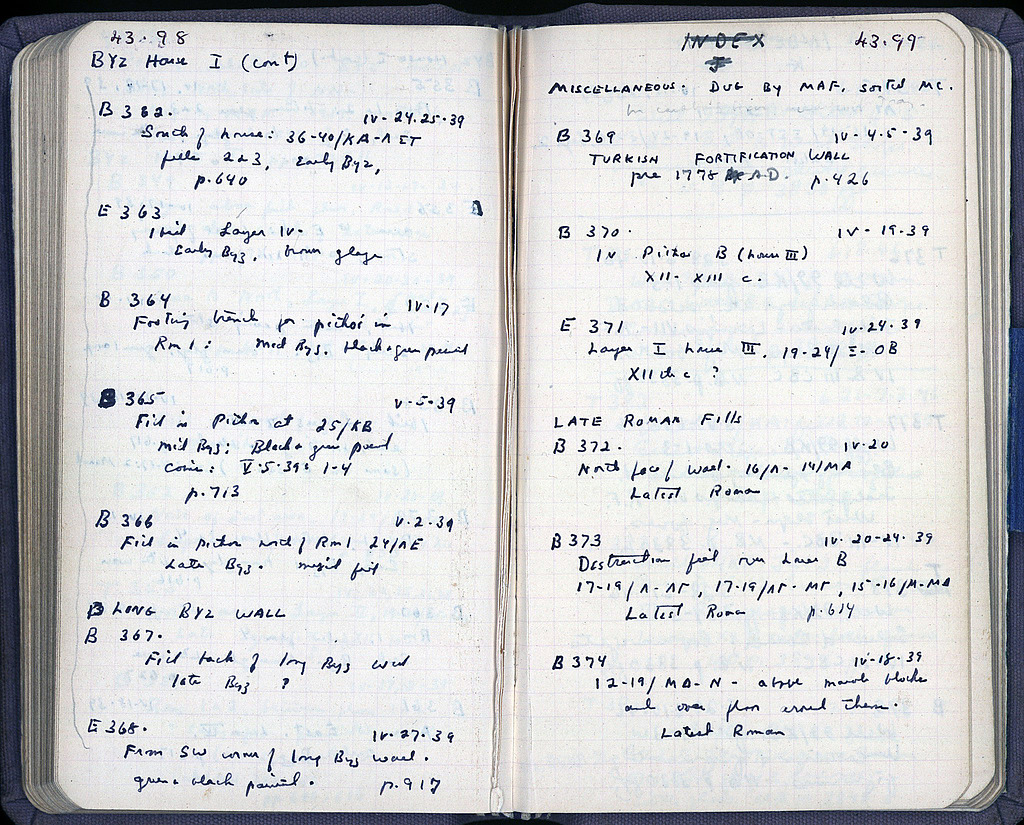 43.98
BYZ House I (cont)
B 362. IV-24.25-39
South of house: 36-40/KA-ΛET
fills 2+3, Early Byz,
p.640
E 363
Layer IV-
Early Byz. brown glaze
B 364 IV-17
Footing trench for pithoi in
Rm 1: Mid Byz. black+green paint
B 365 V-5-39
Fill in pithos at 25/KB
mid Byz; Black+green paint
coins: V-5-39: 1-4
p.713
B 366 V-2-39
Fill in pithos north of Rm 1, 24/ΛE
Late Byz. mixed fill
B LONG BYZ WALL
B 367.
Fill back of long Byz wall
late Byz ?
E 368. IV-27-39
From SW corner of long Byz wall.
green+black painted. p.917
INDEX 43.99
MISCELLANEOUS: DUG BY MAF, sorted MC.
B 369 IV-4-5-39
TURKISH FORTIFICATION WALL
pre 1778 A.D. p.426
B 370. IV-19-39
In Pithos B (house III)
XII-XIII c.
E 371 IV-24-39
Layer I house III. 19-24/Ξ-OB
XIIth c ?
LATE ROMAN Fills
B 372. IV-20
North face of wall. 16/Λ-14/MA
Latest Roman
B 373 IV-20-24-39
Destruction fill over house B
17-19/Λ-ΛΓ, 17-19/ΛΓ-MΓ, 15-16/M-MA
Latest Roman p.614
B 374 IV-18-39
12-19/MΔ-N - above marble blocks
and over floor around them.
Latest Roman